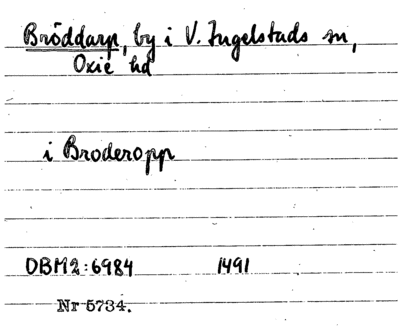 Bröddarp, by i V. Ingelstads sn,
Oxie hd
i Broderopp
DBM2:6984 1491
Nr 5734.